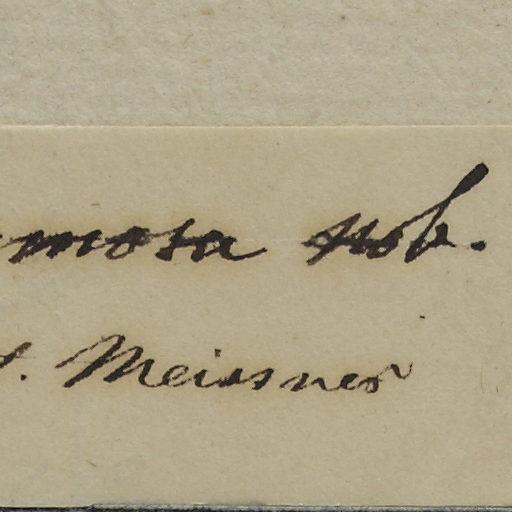 mosa nob.
. Meissner